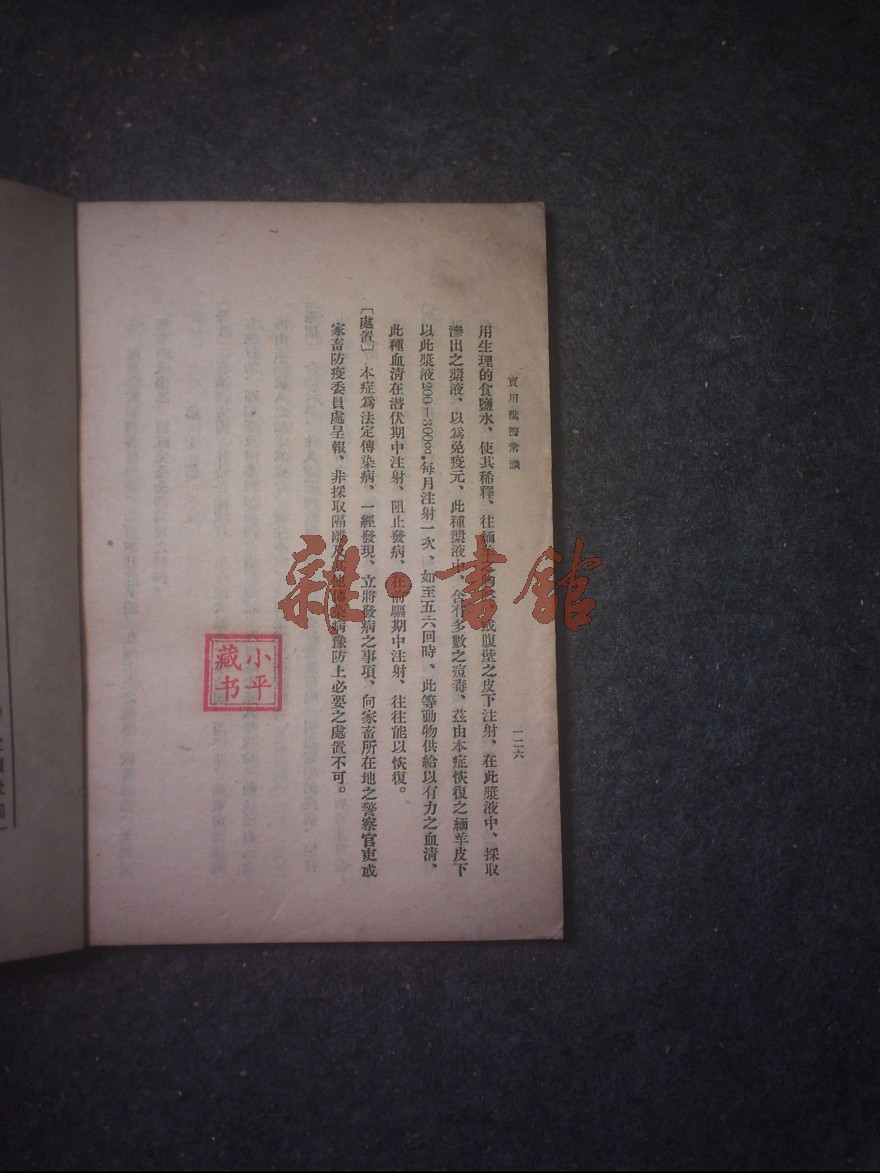 實用獸醫常識
一二六
用生理的食鹽水、使其稀釋、往緬羊之胸 或腹壁之皮下注射、在此漿液中、採取
滲出之漿液、以爲免疫元、此種漿液中、含有多數之痘毒、茲由本症恢復之緬羊皮下
以此漿液200-300cc.每月注射一次、如至五六回時、此等動物供給以有力之血淸、
此種血淸在潛伏期中注射、阻止發病、在前驅期中注射、往往能以恢復。
〔處置〕 本症爲法定傳染病、一經發現、立將發病之事項、向家畜所在地之警察官吏或
家畜防疫委員處呈報、非採取隔離及其他傳染病豫防上必要之處置不可。
雜·書館
小平
藏书